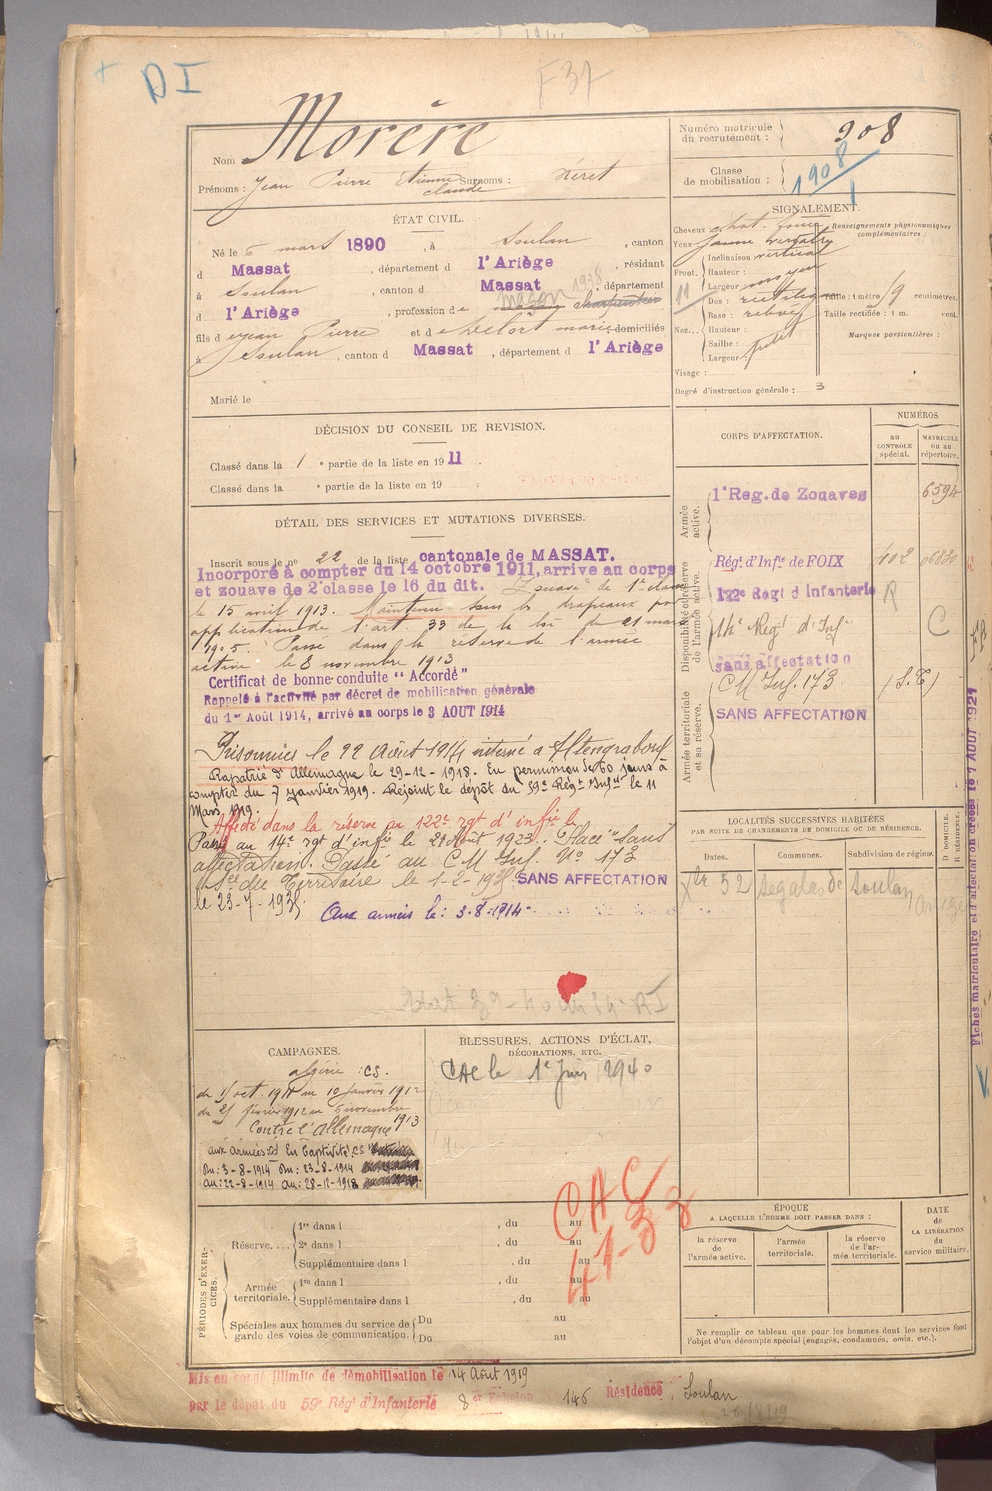 DI
F 37
Nom Morère
Prénoms : Jean Pierre Etienne Claude Surnoms : Néret
Numéro matricule du recrutement : 908
Classe de mobilisation : 1908
ÉTAT CIVIL.
Né le 6 mars 1890, à Soulan, canton
d Massat, département d l'Ariège, résidant
à Soulan, canton d Massat, département
d l'Ariège, profession de maçon charpentier
maçon 1938
fils de Jean Pierre et de Delort marie, domiciliés
à Soulan, canton d Massat, département d l'Ariège
Marié le
SIGNALEMENT.
Cheveux chat. foncé
Yeux jaune verdatre
Front. Inclinaison vertical
Hauteur :
Largeur moyen
Nez... Dos : rectiligne
Base : relevé
Hauteur :
Saillie : petit
Largeur :
Visage :
Renseignements physionomiques complémentaires :
11
Taille : 1 mètre 59 centimètres.
Taille rectifiée : 1 m. cent.
Marques particulières :
Degré d'instruction générale : 3
DÉCISION DU CONSEIL DE REVISION.
Classé dans la 1e partie de la liste en 1911.
Classé dans la e partie de la liste en 19 .
DÉTAIL DES SERVICES ET MUTATIONS DIVERSES.
Inscrit sous le no 22 de la liste cantonale de MASSAT.
Incorporé à compter du 14 octobre 1911, arrive au corps
et zouave de 2e classe le 16 du dit. Zouave de 1e classe
le 15 avril 1913. Maintenu sous les drapeaux par
application de l'art 33 de la loi du 21 mars
1905. Passé dans la réserve de l'armée
active le 8 novembre 1913
Certificat de bonne conduite "Accordé"
Rappelé à l'activité par décret de mobilisation générale
du 1er Août 1914, arrivé au corps le 3 AOUT 1914
Prisonnier le 22 Août 1914 interné a Altengrabow
Rapatrié d'Allemagne le 29-12-1918. En permission de 60 jours à
compter du 7 janvier 1919. Rejoint le dépôt du 59e Régt Infie le 11
Mars 1919.
Affecté dans la réserve au 122e rgt d'infie le
Passé au 14e rgt d'infie le 21 Août 1923. Placé "Sans
affectation". Passé au C M Inf. No 173
SANS AFFECTATION
Aux armées le : 3-8-1914
CORPS D'AFFECTATION.
NUMÉROS
au CONTRÔLE spécial.
MATRICULE ou au répertoire.
Armée active.
1e Reg. de Zouaves 6594
Disponibilité et réserve de l'armée active.
Régt d'Infie de FOIX 402
122e Régt d'Infanterie R
14e Regt d'Infie C
sans affectation
Armée territoriale et sa réserve.
C M Inf. 173 (S.T)
SANS AFFECTATION
LOCALITÉS SUCCESSIVES HABITÉES
PAR SUITE DE CHANGEMENTS DE DOMICILE OU DE RÉSIDENCE.
Dates.
Communes.
Subdivision de région.
D DOMICILE.
R RÉSIDENCE.
Soulan
Fiches matriculaire et d'affectation créées le 7 AOUT 1921
CAMPAGNES.
algérie : CS.
du 15 oct. 1911 au 10 Janvier 1912
du 25 février 1912 au 6 novembre 1913
Contre l'Allemagne
aux armées En Captivité
Du : 3-8-1914 Du : 23-8-1914
au : 22-8-1914 au : 28-12-1918
BLESSURES, ACTIONS D'ÉCLAT,
DÉCORATIONS, ETC.
CAC le 1e Juin 1940
PÉRIODES D'EXERCICES.
Réserve.... 1re dans l , du au
2e dans l , du au
Supplémentaire dans l , du au
Armée territoriale. 1re dans l , du au
Supplémentaire dans l , du au
Spéciales aux hommes du service de garde des voies de communication. Du au
Du au
CAC
41-33
ÉPOQUE
A LAQUELLE L'HOMME DOIT PASSER DANS :
la réserve de l'armée active.
l'armée territoriale.
la réserve de l'armée territoriale.
DATE de LA LIBÉRATION du service militaire.
Ne remplir ce tableau que pour les hommes dont les services font
l'objet d'un décompte spécial (engagés, condamnés, omis, etc.).
Mis en congé illimité de démobilisation le 14 Août 1919
par le dépôt du 59e Régt d'Infanterie 8e Echelon 146 Résidence Soulan
26/8/19